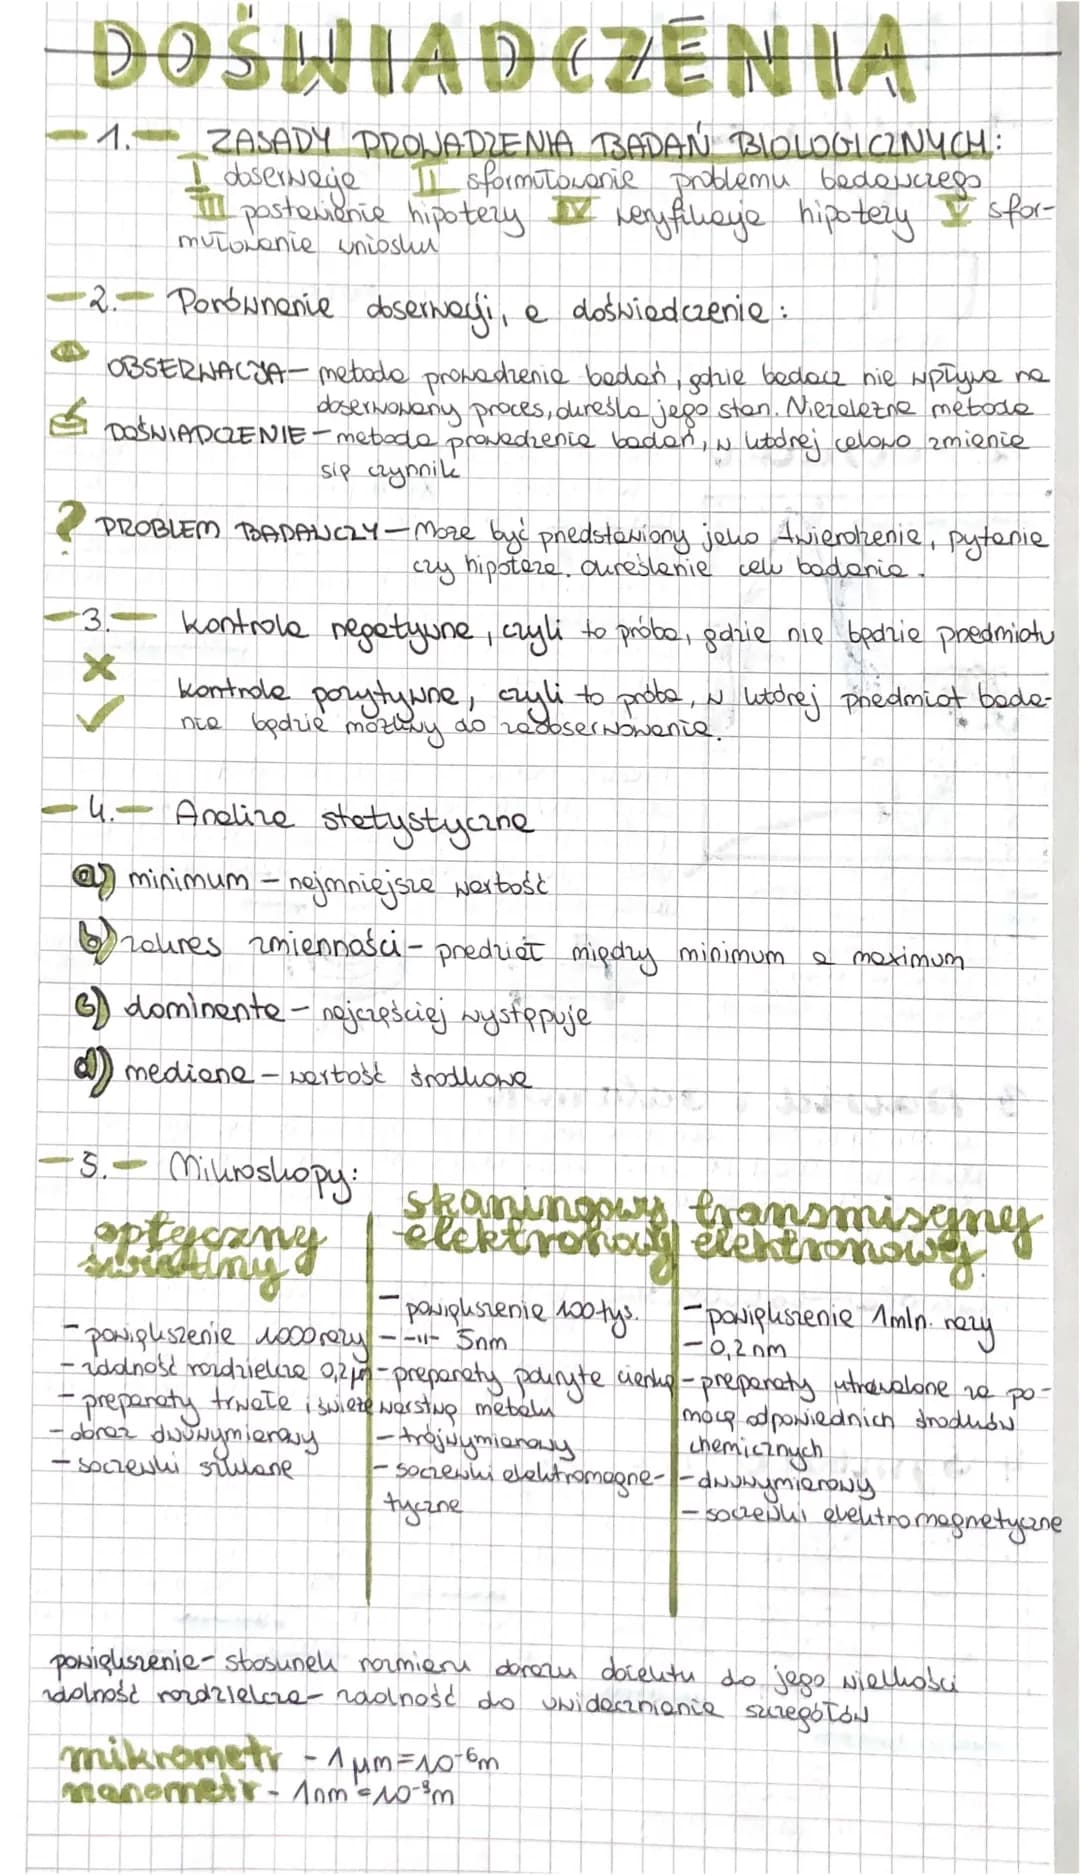 DOŚWIADCZENIA
-1.- ZASADY PROWADZENIA BADAŃ BIOLOGICZNYCH:
I obserwacja II sformułowanie problemu badawczego
III postawienie hipotezy IV weryfikacja hipotezy V sfor-
mułowanie wniosku
-2.- Porównanie obserwacji, a doświadczenie:
OBSERWACJA - metoda prowadzenia badań, gdzie badacz nie wpływa na
obserwowany proces, określa jego stan. Niezależna metoda
DOŚWIADCZENIE - metoda prowadzenia badań, w której celowo zmienia
się czynnik
? PROBLEM BADAWCZY - Może być przedstawiony jako twierdzenie, pytanie
czy hipoteza. Określenie celu badania.
-3.- Kontrola negatywna, czyli to próba, gdzie nie będzie przedmiotu
Kontrola pozytywna, czyli to próba, w której przedmiot bada-
nia będzie możliwy do zaobserwowania.
-4.- Analiza statystyczna
a) minimum - najmniejsza wartość
b) zakres zmienności - przedział między minimum a maximum
c) dominanta - najczęściej występuje
d) mediana - wartość środkowa
-5.- Mikroskopy:
optyczny świetlny
- powiększenie 1000 razy
- zdolność rozdzielcza 0,2 μm
- preparaty trwałe i świeże
- obraz dwuwymiarowy
- soczewki szklane
skaningowy elektronowy
- powiększenie 100 tys.
- -11- 5nm
- preparaty pokryte cienką
warstwą metalu
- trójwymiarowy
- soczewki elektromagne-
tyczne
transmisyjny elektronowy
- powiększenie 1mln. razy
- 0,2 nm
- preparaty utrwalone za po-
mocą odpowiednich środków
chemicznych
- dwuwymiarowy
- soczewki elektromagnetyczne
powiększenie - stosunek rozmiaru obrazu obiektu do jego wielkości
zdolność rozdzielcza - zdolność do uwidaczniania szczegółów
mikrometr - 1 μm = 10⁻⁶m
nanometr - 1nm = 10⁻⁹m